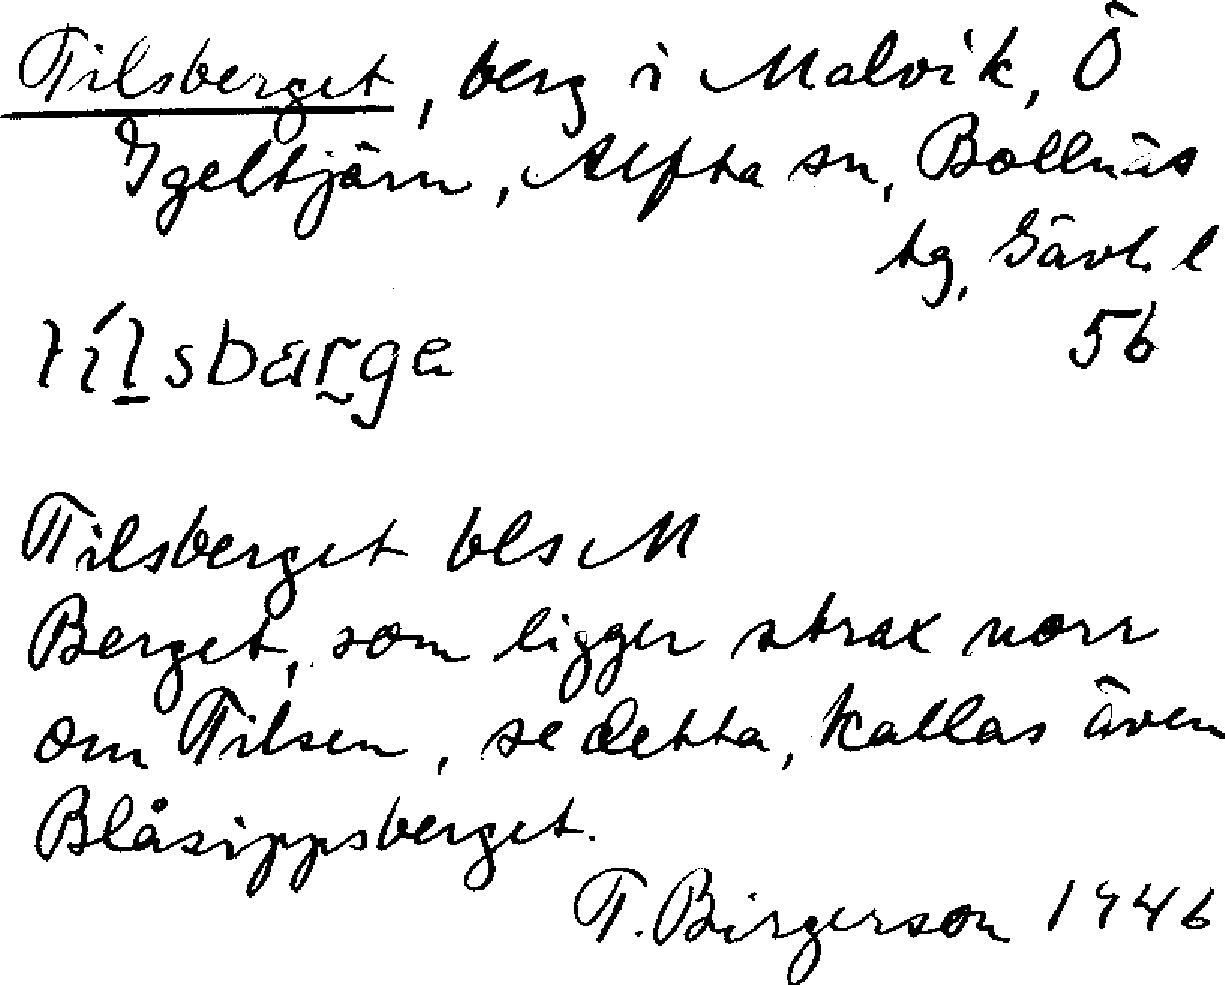 Tilsberget, berg i Malvik, Ö
Igeltjärn, Alfta sn, Bollnäs
tg, Gävl. l
56
tílsbærge
Tilsberget bls M
Berget, som ligger strax norr
om Tilsen, se detta, kallas även
Blåsippsberget.
T. Birgerson 1946